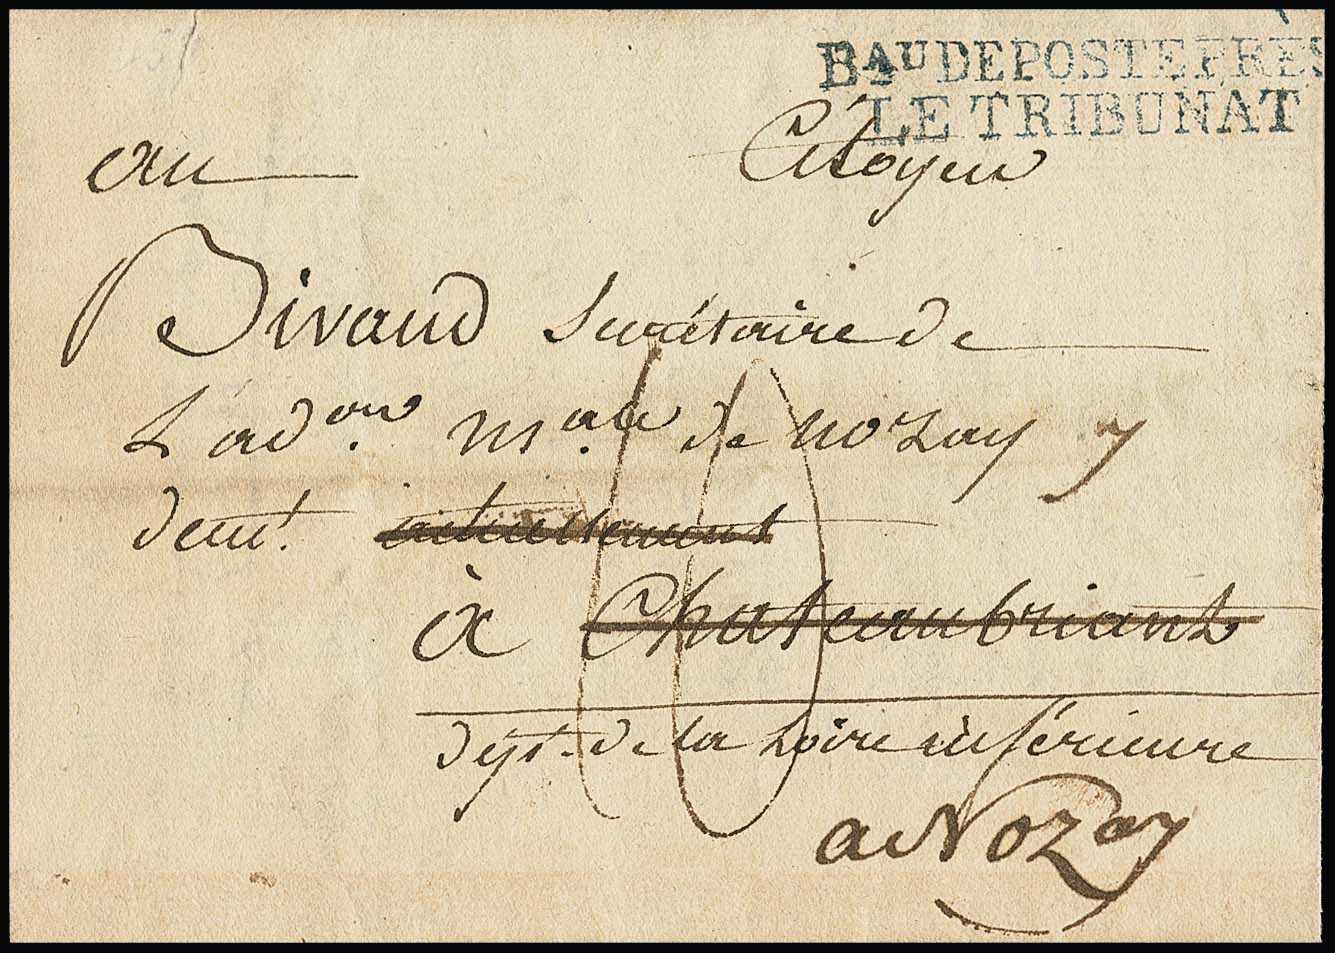 BAU DE POSTE PRÈS
LE TRIBUNAT
au Citoyen
Bivaud Secrétaire de
L'adon. male. de nozay
demt. actuellement
à Chateaubriant
dept. de la Loire inférieure
a Nozay
10